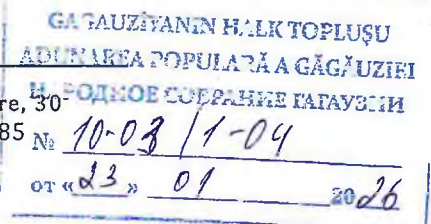 GAGAUZİYANIN HALK TOPLUŞU
ADUNAREA POPULARĂ A GĂGĂUZIEI
НАРОДНОЕ СОБРАНИЕ ГАГАУЗИИ
re, 30
85 № 10-03/1-04
от «23» 01 2026